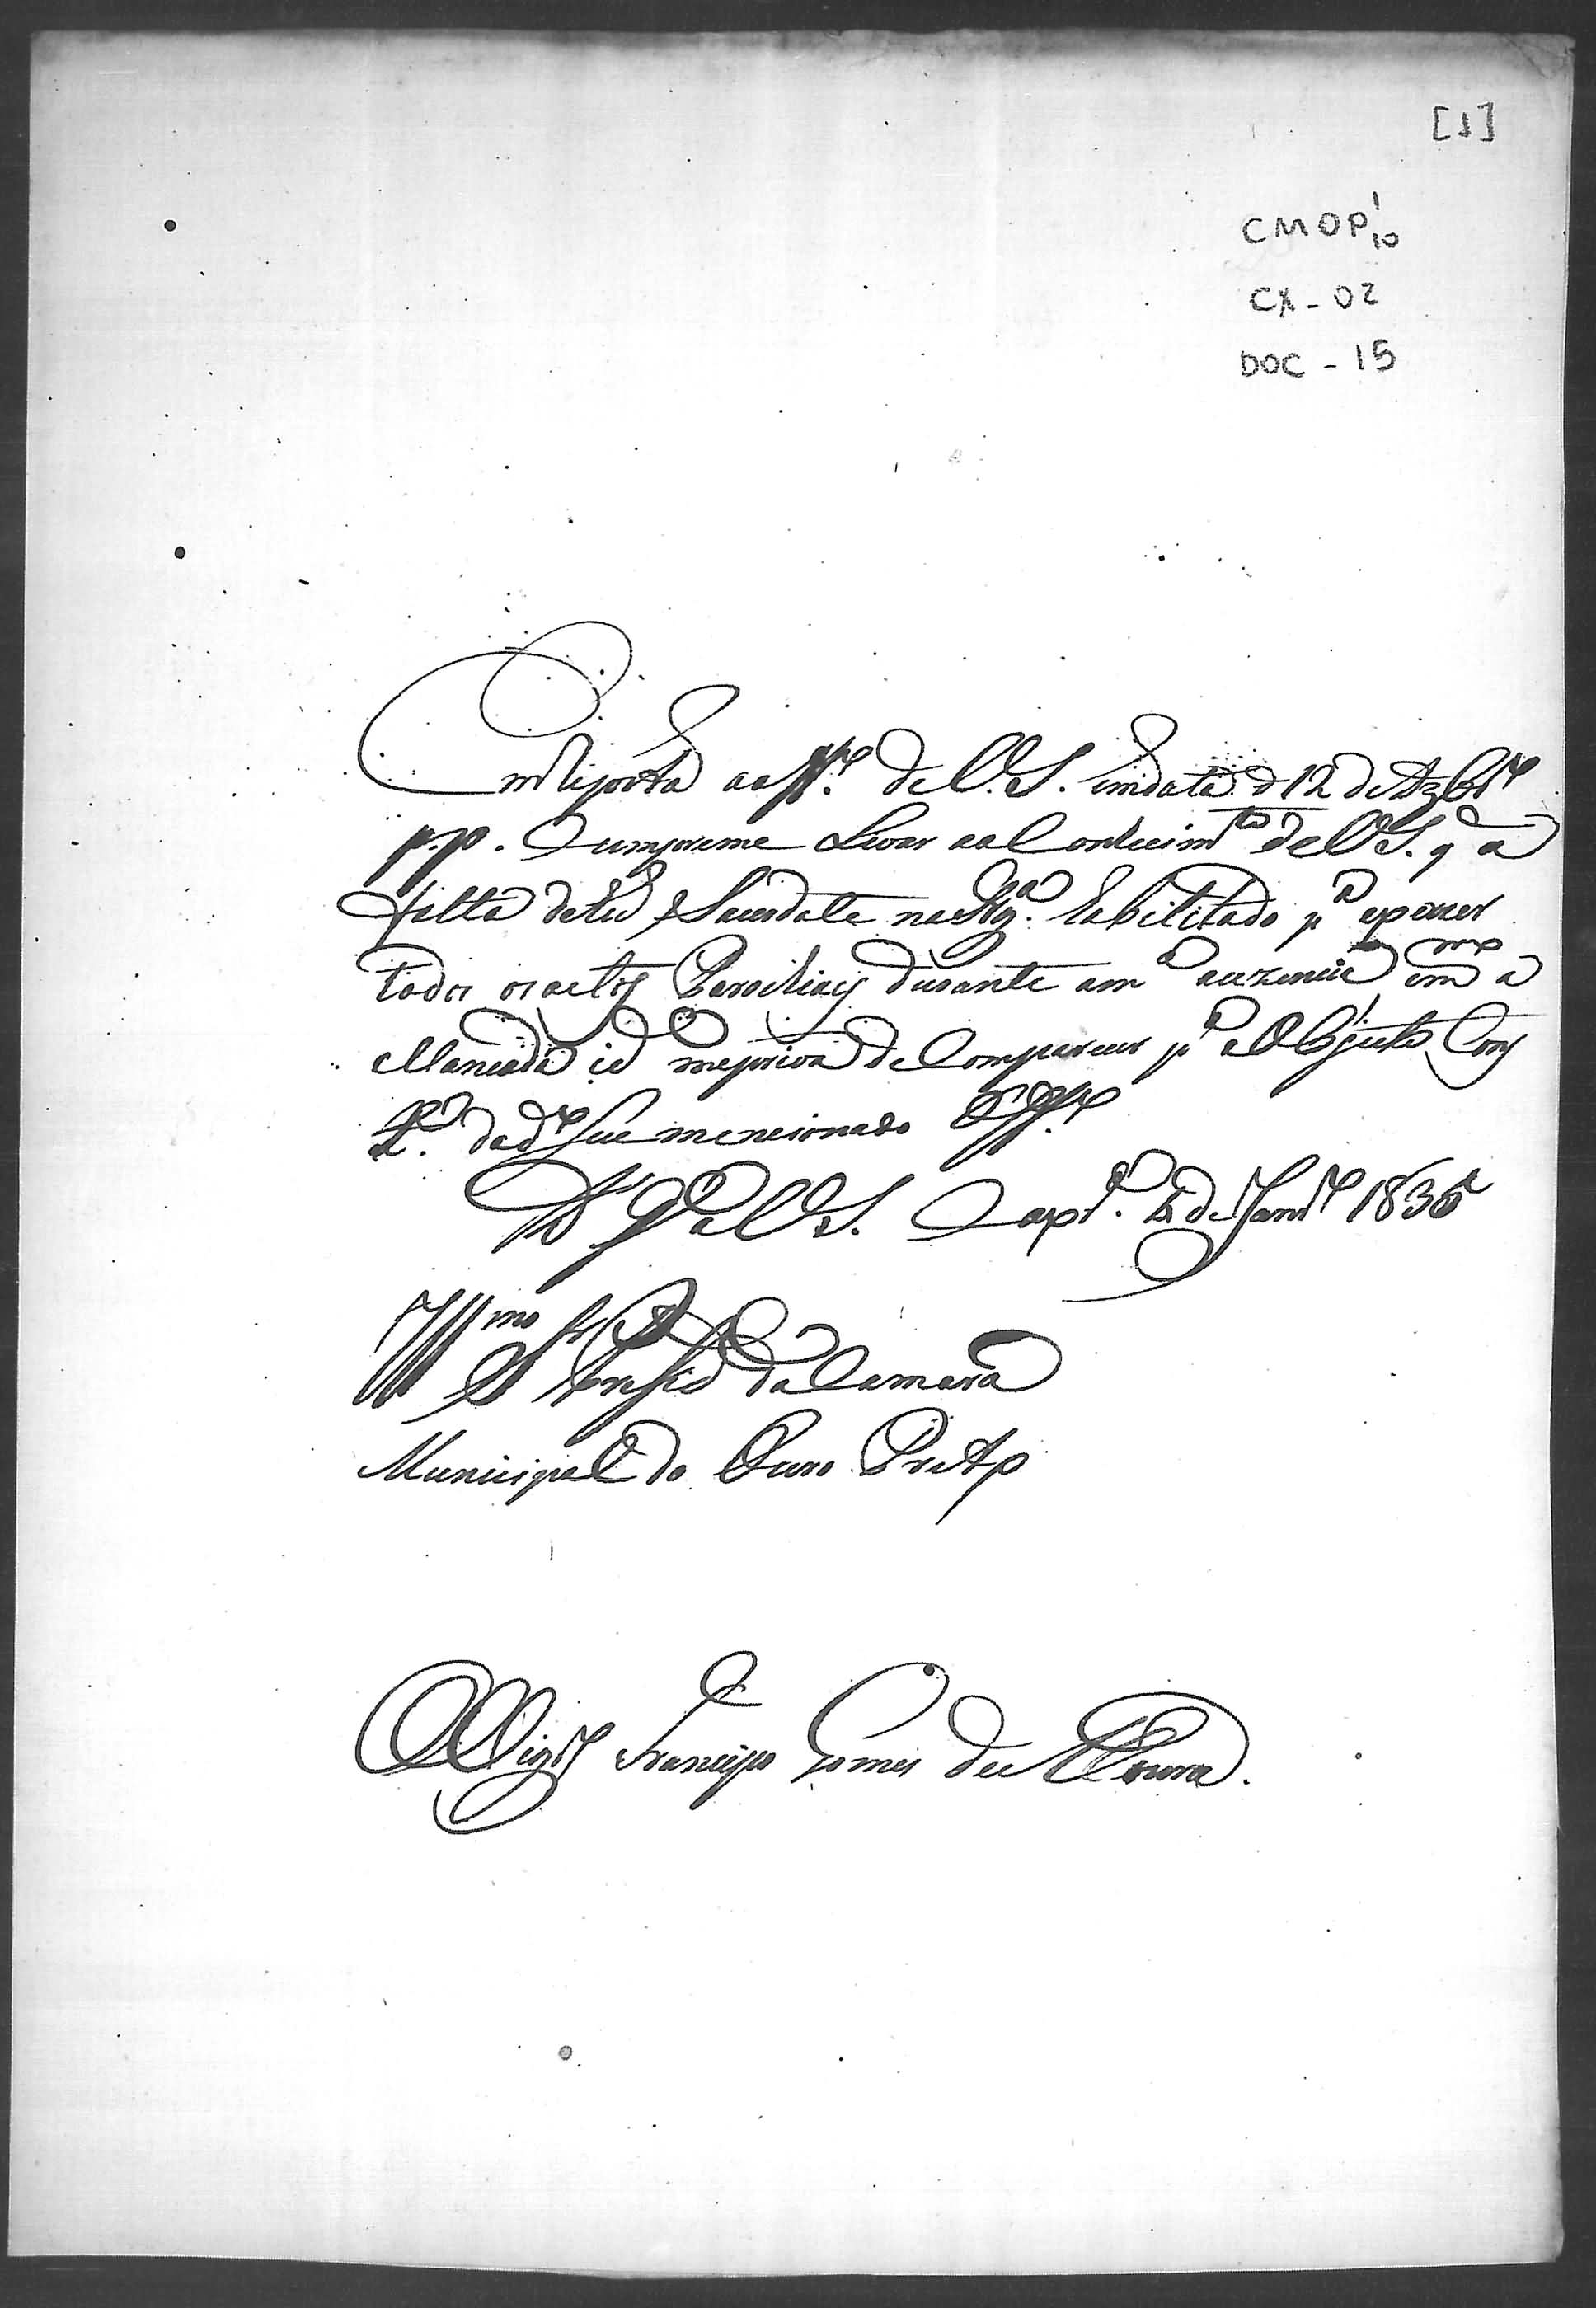 [1]
CMOP 1/10
CX - 02
DOC - 15
Em Resposta ao Off.e de V.S. em data d 12 de Dezbr.e
p.p. Cumpreme Levar ao Conhecim.to de V.S. q a
falta de Sacerdote na Freg.a habilitado p.a exercer
todos os actos Parochiaes durante a m.a auzencia
me priva de Comparecer p.a o Objecto Cons
t.e do d.e Sue mencionado Off.e
D.s G.e a V.S. 2 de Janr.o 1835
Illmo Sr Presid da Camara
Municipal do Ouro Preto
Francisco Gomes de Moura.